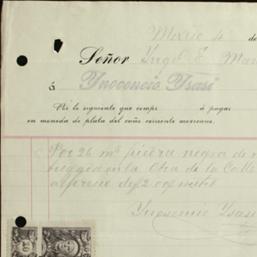 Mexico 4 de
Señor Ingo E. Mar
á Inocencio Ysasi
Por lo siguiente que compr á pagar
en moneda de plata del cuño corriente mexicano.
Por 26 m³ piedra negra de
en la Obra de la Calle
a precio de $2 c
Inosencio Ysasi